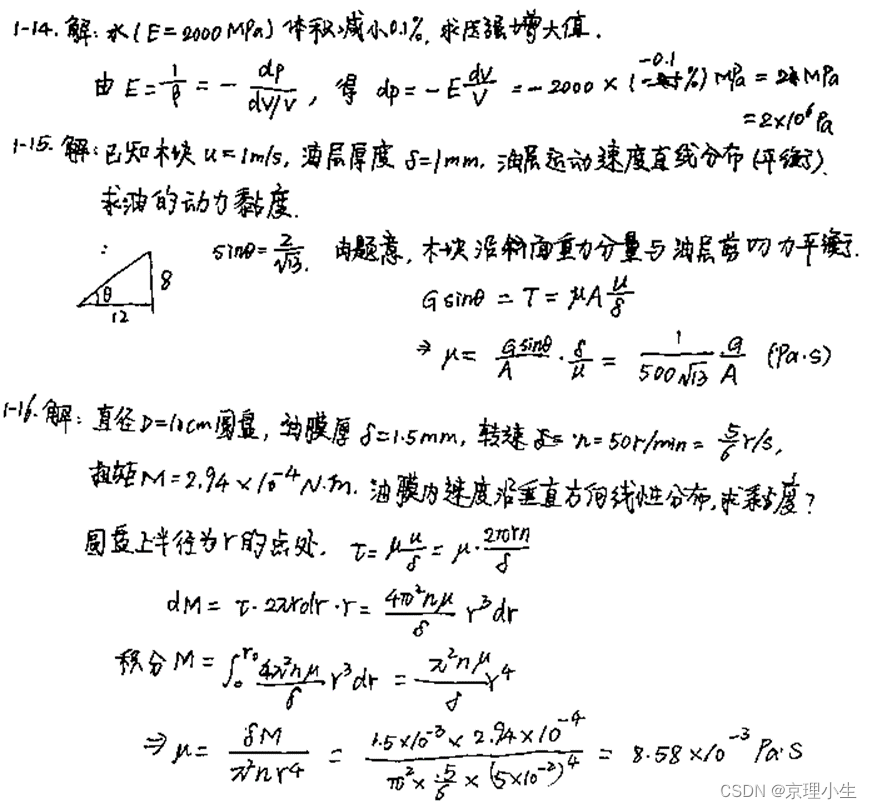 1-14. 解: 水 (E=2000MPa) 体积减小0.1%, 求压强增大值.
由 E = 1/β = - dp/(dV/V), 得 dp = -E dV/V = -2000 × (-0.1%) MPa = 2 MPa
= 2×10⁶ Pa
1-15. 解: 已知木块 u=1m/s, 油层厚度 δ=1mm. 油层运动速度直线分布 (平衡).
求油的动力黏度.
: sinθ = 2/√13. 由题意, 木块沿斜面重力分量与油层剪切力平衡.
θ 8 12
G sinθ = T = μA u/δ
⇒ μ = G sinθ/A · δ/u = 1/(500√13) · G/A (Pa·s)
1-16. 解: 直径 D=10cm圆盘, 油膜厚 δ=1.5mm, 转速 n=50r/min = 5/6 r/s,
扭矩 M=2.94×10⁻⁴ N·m. 油膜内速度沿垂直方向线性分布, 求黏度?
圆盘上半径为r的点处. τ = μ u/δ = μ · 2πrn/δ
dM = τ · 2πrdr · r = 4π²nμ/δ r³dr
积分 M = ∫₀^r₀ 4π²nμ/δ r³dr = π²nμ/δ r⁴
⇒ μ = δM/(π²nr⁴) = (1.5×10⁻³ × 2.94×10⁻⁴)/(π² × 5/6 × (5×10⁻²)⁴) = 8.58×10⁻³ Pa·s
CSDN @京理小生